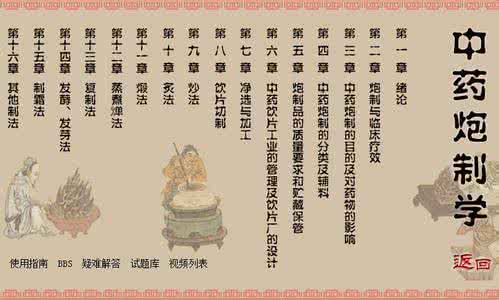 中药炮制学
返回
第一章 绪论
第二章 炮制与临床疗效
第三章 中药炮制的目的及对药物的影响
第四章 中药炮制的分类及辅料
第五章 炮制品的质量要求和贮藏保管
第六章 中药饮片工业的管理及饮片厂的设计
第七章 净选与加工
第八章 饮片切制
第九章 炒法
第十章 炙法
第十一章 煅法
第十二章 蒸煮燀法
第十三章 复制法
第十四章 发酵、发芽法
第十五章 制霜法
第十六章 其他制法
使用指南 BBS 疑难解答 试题库 视频列表